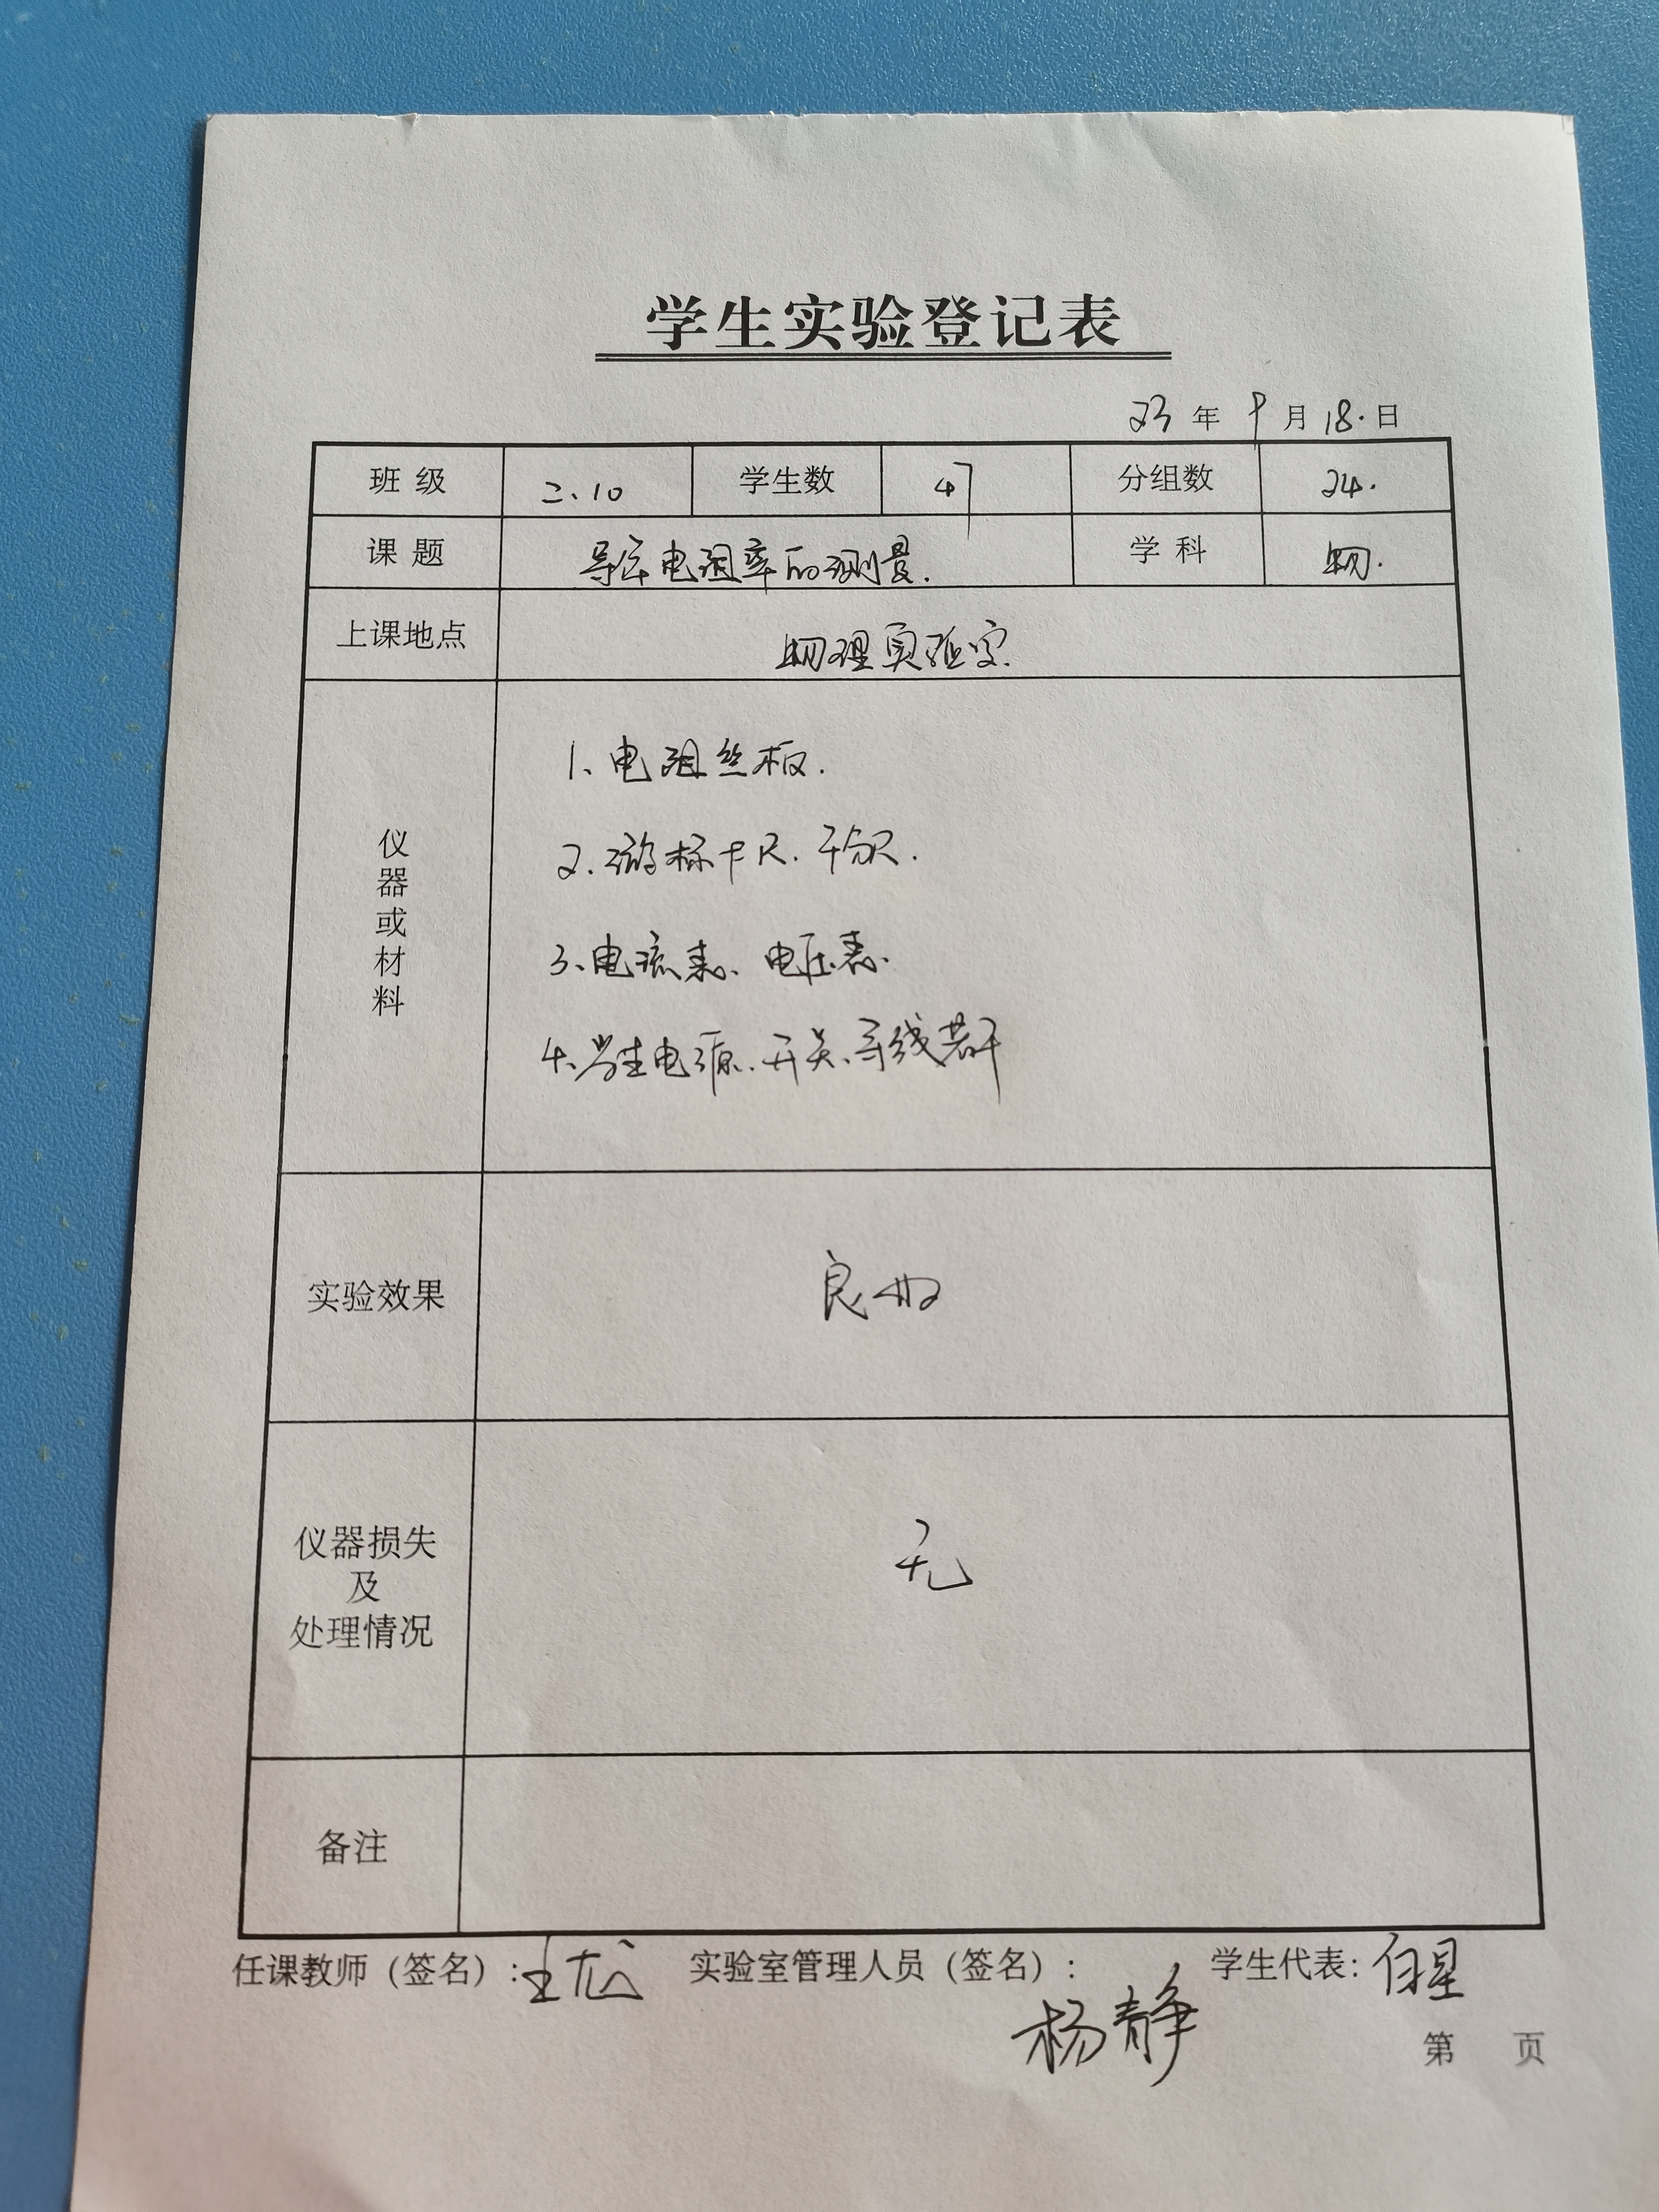 学生实验登记表
23 年 9 月 18. 日
班 级 二、10 学生数 47 分组数 24.
课 题 导体电阻率的测量. 学 科 物.
上课地点 物理实验室.
仪器或材料
1、电阻丝板.
2.游标卡尺.千分尺.
3、电流表、电压表.
4、学生电源、开关、导线若干
实验效果 良好
仪器损失
及
处理情况
无
备注
任课教师（签名）:王 实验室管理人员（签名）: 学生代表:
杨静
第 页